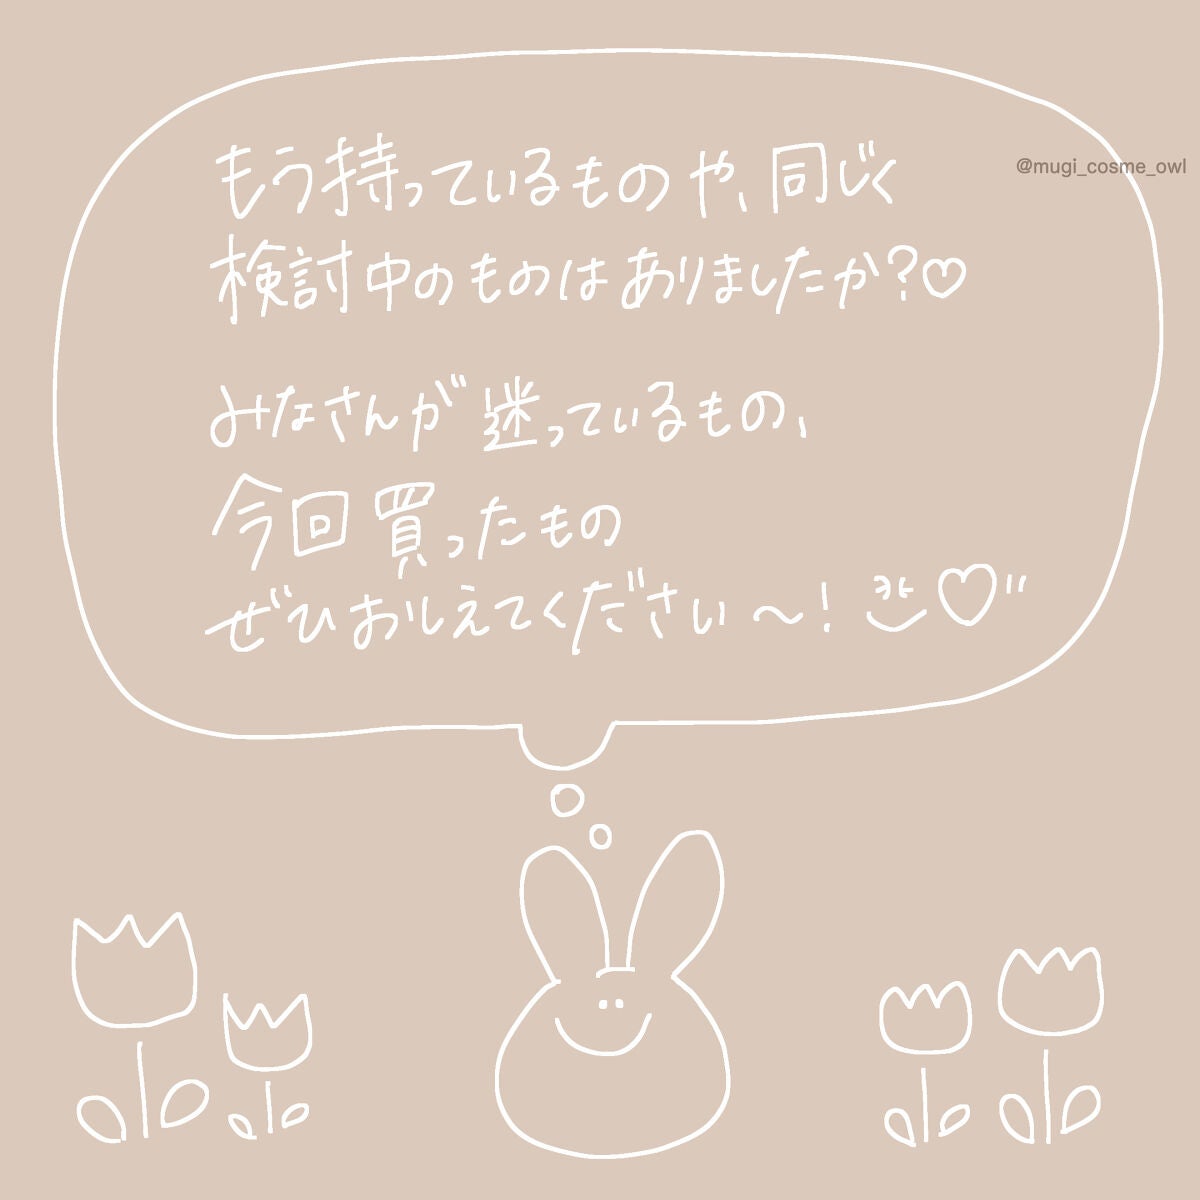 もう持っているものや、同じく
@mugi_cosme_owl
検討中のものはありましたか?♡
みなさんが迷っているもの、
今回買ったもの
ぜひおしえてください〜!